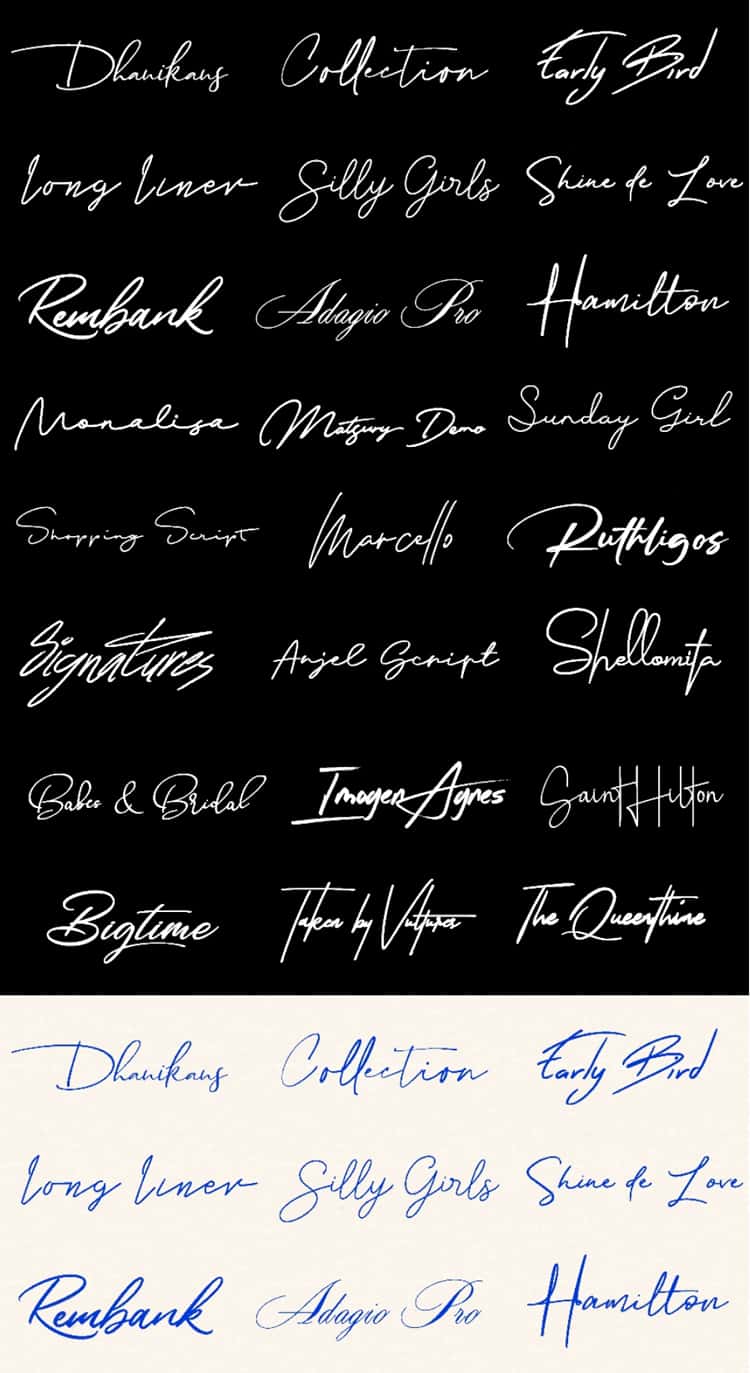 Dhanikans Collection Early Bird
Long Liner Silly Girls Shine de Love
Rembank Adagio Pro Hamilton
Monalisa Matsury Demo Sunday Girl
Shopping Script Marcello Ruthligos
Signatures Anjel Script Shellomita
Babes & Bridal Imogen Agnes Saint Hilton
Bigtime Taken by Vultures The Queenthine
Dhanikans Collection Early Bird
Long Liner Silly Girls Shine de Love
Rembank Adagio Pro Hamilton